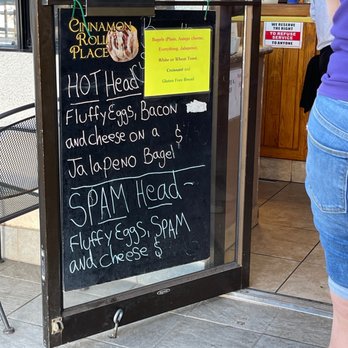 CINNAMON
ROLL
PLACE
Bagels (Plain, Asiago Cheese,
Everything, Jalapeno,
White or Wheat Toast,
Croissant or
Gluten Free Bread
WE RESERVE
THE RIGHT
TO REFUSE
SERVICE
TO ANYONE
HOT Head-
Fluffy Eggs, Bacon
and cheese on a $
Jalapeno Bagel
SPAM Head-
Fluffy Eggs, SPAM
and cheese $